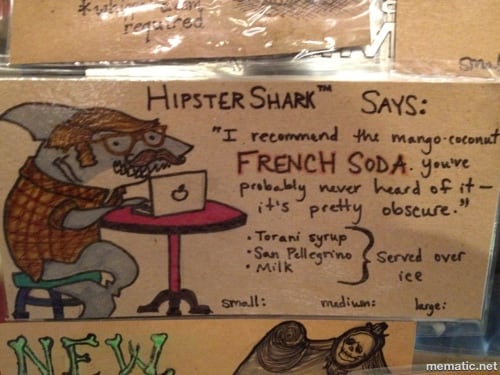 required
HIPSTER SHARK™ SAYS:
"I recommend the mango-coconut
FRENCH SODA. you've
probably never heard of it—
it's pretty obscure."
• Torani syrup
• San Pellegrino
• Milk
Served over
ice
small: medium: large:
NEW
mematic.net